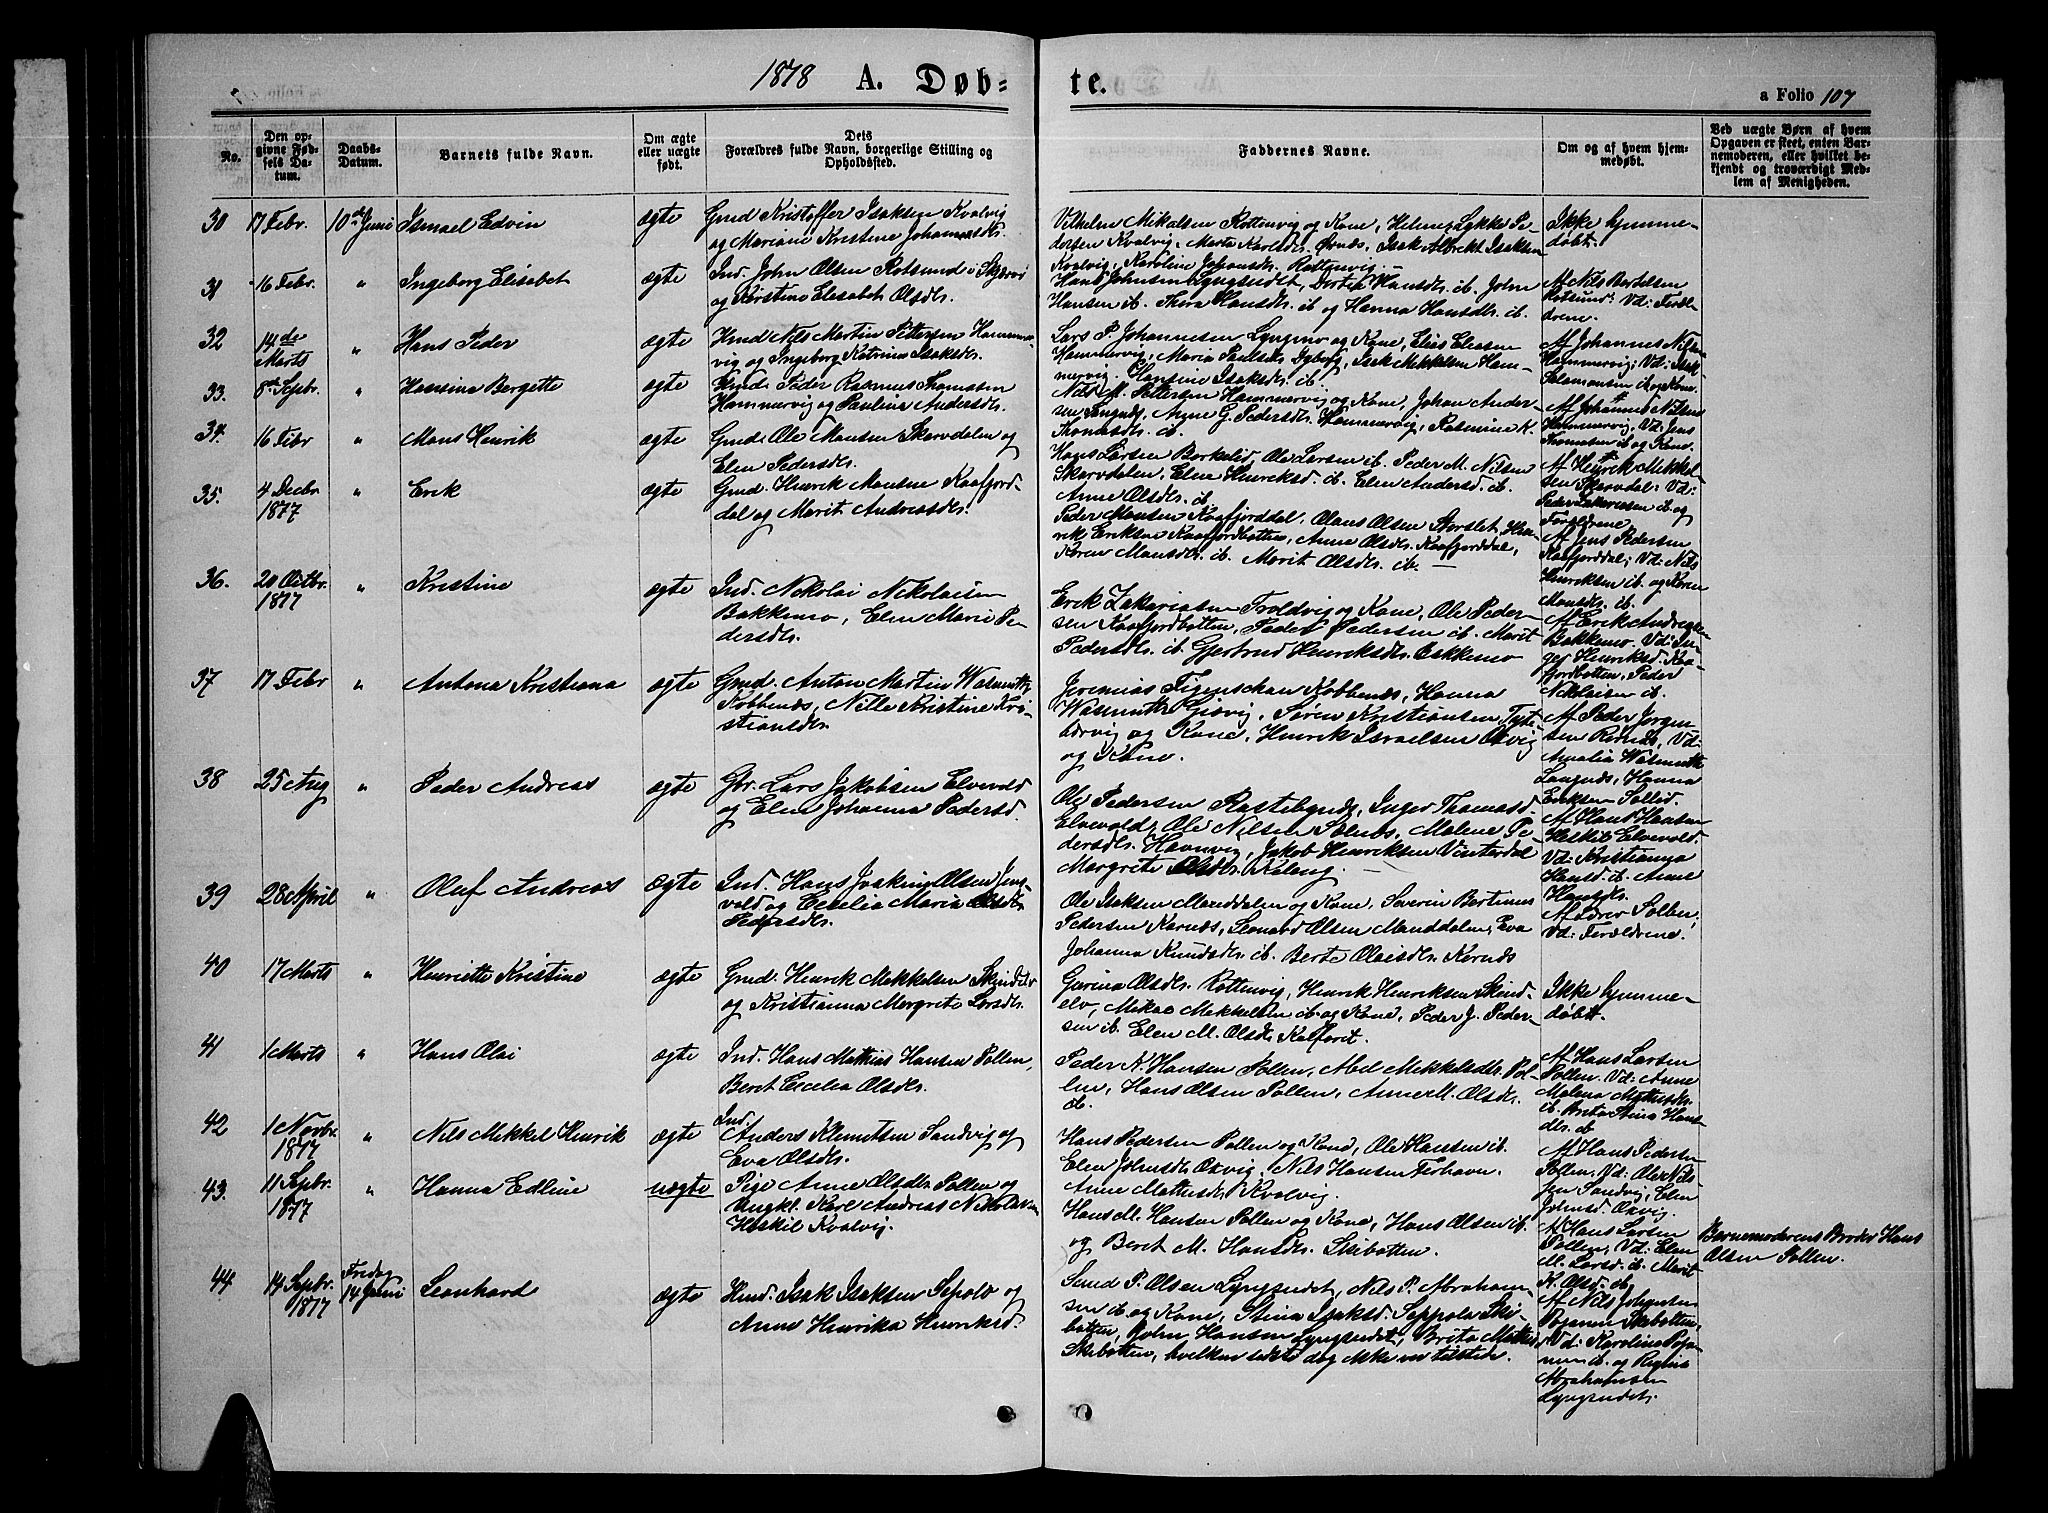 1878 A. Døb= te. a Folio 107
No.
Den op=
givne Fød=
sels Da=
tum.
Daabs=
Datum.
Barnets fulde Navn.
Om ægte
eller uægte
født.
Dets
Forældres fulde Navn, borgerlige Stilling og
Opholdssted.
Faddernes Navne.
Om og af hvem hjem=
medøbt.
Ved uægte Børn af hvem
Opgaven er skeet, enten Bar=
nemoderen, eller hvilket be=
kjendt og troværdigt Med=
lem af Menigheden.
30 17 Febr. 10de Juni Ismael Edvin ægte
Gmd Kristoffer Isaksen Kvalvig
og Mariane Kristine Johannesdtr.
Vilhelm Mikalsen Rottenvig og Kone, Helene Lykke Pe-
dersen Kvalvig, Marta Karlsdtr. Ørnes, Isak Albrekt Isaksen
Kvalvig, Karoline Johansdtr. Rottenvig.
Ikke hjemme-
døbt.
31 16 Febr. " Ingeborg Elisabet ægte
Ind. John Olsen Rotsund i Skjærvø
og Kirstine Elisabet Olsdtr.
Hans Johnsen Lyngseidet, Dortea Hansdtr. ib. John
Hansen ib. Thora Hansdtr. ib og Hanna Hansdtr. ib.
Af Nils Bertelsen
Rotsund: Vd: Foræl-
drene.
32 14de
Marts " Hans Peder ægte
Hmd Nils Martin Pettersen Hammer-
vig og Ingeborg Katrine Isaksdtr.
Lars P. Johannesen Lyngmo og Kone, Elias Eliasen
Hammervig, Maria Paulsdtr. Dyberg, Isak Mekkelsen Ham-
mervig. Hansine Isaksdtr. ib.
Af Johannes Nilsen
Hammervig; Vd: Isak
Salamonsen ib og Kone.
33. 8de Sepbr. " Hansina Bergette ægte
Hmd. Peder Rasmus Thomasen
Hammervig og Paulina Andersdtr.
Nils M. Pettersen Hammervig og Kone, Johan Ander-
sen Langnes, Anne G. Pedersdtr. Hammervig, Rasmine K.
Thomasdtr. ib.
Af Johannes Nilsen
Hammervig, Vd: Jens
Thomasen ib og Kone.
34. 16 Febr " Mons Henrik ægte
Gmd. Ole Monsen Skarvdalen og
Elen Pedersdtr.
Hans Larsen Borkelid, Ole Larsen ib. Peder M. Nilsen
Skarvdalen, Elene Henriksd. ib. Elen Andersd. ib.
Anne Olsdtr. ib.
Af Henrik Mekkel
sen Skarvdal: Vd:
Peder Zakariasen ib og
Forældrene
35. 4 Decbr
1877 " Erik ægte
Gmd. Henrik Monsen Kaafjord-
dal og Marit Andreasdtr.
Peder Monsen Kaafjorddal, Olaus Olsen Storslet, Hen-
rik Eriksen Kaafjordbotten, Anne Olsdtr. Kaafjorddal,
Karen Monsdtr. ib. Marit Olsdtr. ib.
Af Jens Pedersen
Kaafjorddal; Vd: Nils
Henriksen ib. og Karen
Monsdtr. ib.
36. 20 Octbr.
1877 " Kristine ægte
Ind. Nikolai Nikolaisen
Bakkemo, Elen Marie Pe-
dersdtr.
Erik Zakariasen Troldvig og Kone, Ole Peder-
sen Kaafjordbotten, Peder Pedersen ib. Marit
Pedersdtr. ib. Gjertrud Henriksdtr. Bakkemo
Af Erik Andreasen
Bakkemo. Vd: In-
ger Henriksd. Kaa-
fjordbotten, Peder
Nikolaisen ib.
37 17 Febr " Antona Kristiana ægte
Gmd. Anton Martin Wasmuth
Kobbenes, Nille Kristine Kri-
stiansdtr.
Jeremias Figenschau Kobbenes, Hanna
Wasmuth Gjøvig, Søren Kristiansen Tyte
bærvig og Kone, Henrik Israelsen Oxvig
og Kone.
Af Peder Jørgen
sen Rernes, Vd:
Amalia Wasmuth
Langnes, Hanna
Eriksen Sollid.
38 25 Aug " Peder Andreas ægte
Gbr. Lars Jakobsen Elvevold
og Elen Johanna Pedersd.
Ole Pedersen Rastebynes, Inger Thomasd.
Elvevold, Ole Nilsen Solnes, Malene Pe-
dersdtr. Havnvig, Jakob Henriksen Vinterdal
Margrete Olsdtr. Koleng.
Af Hans Hansen
Heskil Elvevold.
Vd: Kristianna
Hansd. ib. Anne
Hansdtr.
39 28 April " Oluf Andreas ægte
Ind. Hans Joakim Olsen Jens-
vold og Cecelia Maria Olsdtr
Pedersdtr.
Ole Isaksen Manddalen og Kone, Severin Bertinus
Pedersen Karnes, Leonard Olsen Manddalen, Eva
Johanna Knudsdtr. ib. Berte Olaisdtr. Karnes
Af Lærer Solberg;
Vd: Forældrene.
40 17 Marts " Henriette Kristine ægte
Gmd. Henrik Mekkelsen Skindelv
og Kristianna Margrete Larsdtr.
Gurina Olsdtr. Rottenvig, Henrik Henriksen Skind-
elv, Mikal Mekkelsen ib og Kone, Peder J. Peder-
sen ib. Elen M. Olsdtr. Kalfaret.
Ikke hjemme-
døbt.
41 1 Marts " Hans Olai ægte
Ind. Hans Mathias Hansen Pollen,
Beret Cecelia Olsdtr.
Peder N. Hansen Pollen, Abel Mekkelsdtr. Pol-
len, Hans Olsen Pollen, Anne M. Olsdtr.
ib.
Af Hans Larsen
Pollen. Vd: Anne
Malena Mathisdtr.
ib. Brita Stina Hans
dtr. ib
42 1 Novbr.
1877 " Nils Mekkel Henrik ægte
Ind.
Anders Klemetsen Sandvig og
Eva Olsdtr.
Hans Pedersen Pollen og Kone, Ole Hansen ib.
Elen Johnsdtr. Oxvig. Nils Hansen Forhavn.
Anne Mathisdtr. Kvalvig.
Af Hans Pedersen
Pollen. Vd: Ole Nils-
sen Sandvig, Elen
Johnsd. Oxvig.
43. 11 Sepbr.
1877 " Hanna Edline uægte
Pige Anne Olsdtr Pollen og
Ungkl. Karl Andreas Nikolaisen
Heskil Kvalvig.
Hans M. Hansen Pollen og Kone, Hans Olsen ib.
og Beret M. Hansdtr. Skibotten.
Af Hans Larsen
Pollen, Vd: Elen
M. Larsd. ib. Marit
K. Olsd. ib.
Barnemoderens Broder Hans
Olsen Pollen.
44 14 Sepbr.
1877 Fredag
14 Juni Leonhard ægte
Hmd. Isak Isaksen Sepolo og
Anna Henrika Henriksd.
Smed P. Olsen Lyngseidet, Nils P. Abraham-
sen ib og Kone, Stina Isaksd. Seppola Ski-
botten, John Hansen Lyngseidet, Brita Mathisd
Skibotten, hvilken sidste dog ikke var tilstede.
Af Nils Johansen
Pojanen Skibotten,
Vd: Karoline Poja-
nen ib. og Regina
Abrahamsen
Lyngseidet.